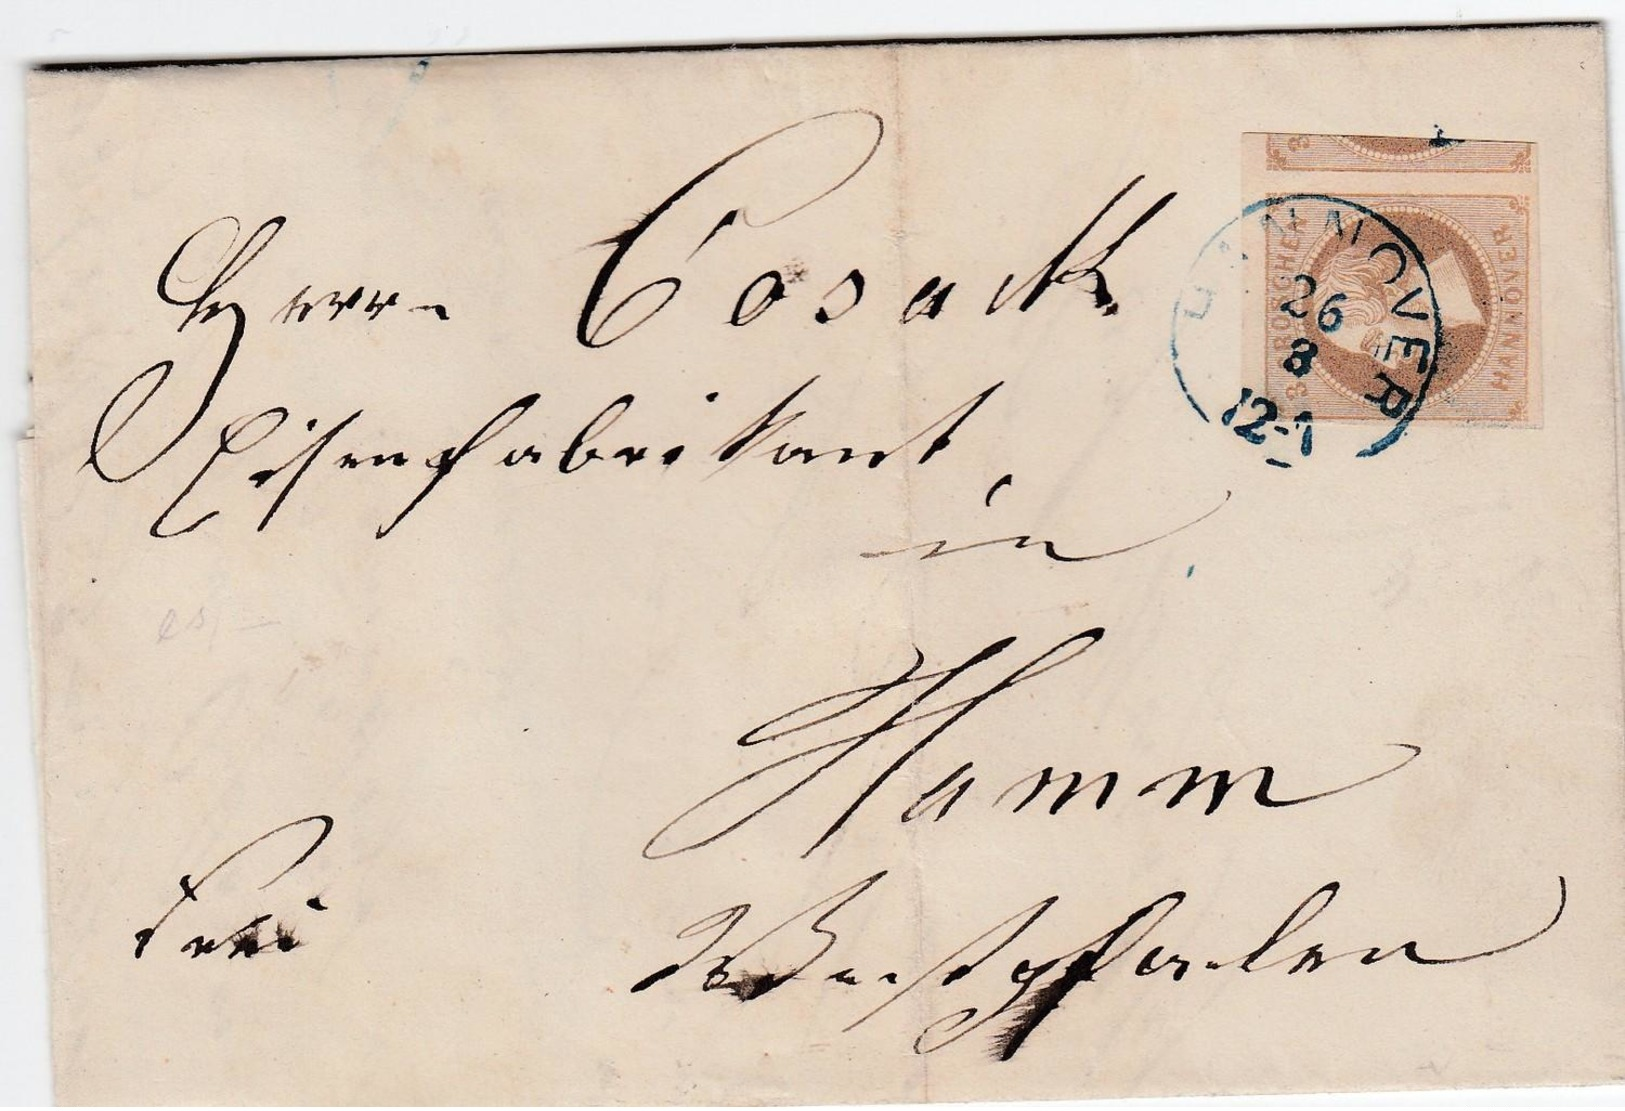 Herrn Cosack
Eisenfabrikant
in
Hamm
Westphalen
frei
HANNOVER
26
8
12-1
HANNOVER
3 GROSCHEN
3